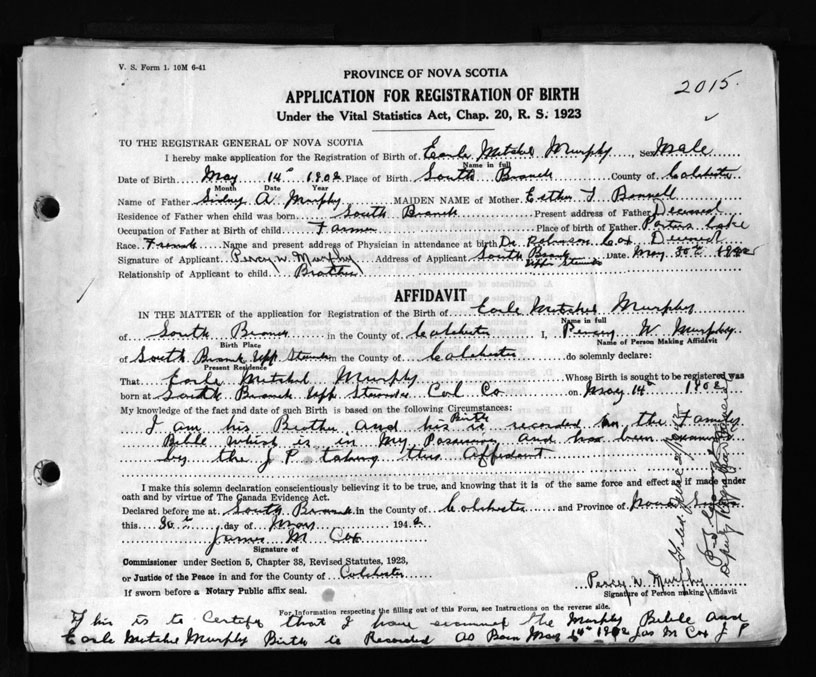 V. S. Form 1. 10M 6-41
PROVINCE OF NOVA SCOTIA
2015.
APPLICATION FOR REGISTRATION OF BIRTH
Under the Vital Statistics Act, Chap. 20, R. S. 1923
TO THE REGISTRAR GENERAL OF NOVA SCOTIA
I hereby make application for the Registration of Birth of Earle Mitchel Murphy Sex Male
Name in full
Date of Birth May 14th 1902 Place of Birth South Branch County of Colchester
Month Date Year
Name of Father Sidney A. Murphy MAIDEN NAME of Mother Esther J Bonnell
Residence of Father when child was born South Branch Present address of Father Deceased
Occupation of Father at Birth of child Farmer Place of birth of Father Porters Lake
Race French Name and present address of Physician in attendance at birth Dr Robinson Cox, Deceased
Signature of Applicant Percy W. Murphy Address of Applicant South Branch Date May 30th 1942
Upper Stewiacke
Relationship of Applicant to child Brother
AFFIDAVIT
IN THE MATTER of the application for Registration of the Birth of Earle Mitchel Murphy
Name in full
of South Branch in the County of Colchester I, Percy W Murphy
Birth Place Name of Person Making Affidavit
of South Branch Upp Stewiacke in the County of Colchester do solemnly declare:
Present Residence
That Earle Mitchel Murphy Whose Birth is sought to be registered was
born at South Branch Upp Stewiacke Col Co on May 14th 1902
My knowledge of the fact and date of such Birth is based on the following Circumstances:
I am his Brother and his Birth is recorded in the Family
Bible which is in My Possession and has been examined
by the J P taking this Affidavit
I make this solemn declaration conscientiously believing it to be true, and knowing that it is of the same force and effect as if made under
oath and by virtue of The Canada Evidence Act.
Declared before me at South Branch in the County of Colchester and Province of Nova Scotia
this 30th day of May 1942
James M Cox
Signature of
Commissioner under Section 5, Chapter 38, Revised Statutes, 1923,
or Justice of the Peace in and for the County of Colchester
Percy W. Murphy
If sworn before a Notary Public affix seal.
Signature of Person making Affidavit
For Information respecting the filling out of this Form, see Instructions on the reverse side.
This is to Certify that I have examined the Murphy Bible and
Earle Mitchel Murphy Birth is Recorded as Born May 14th 1902 Jas M Cox J P